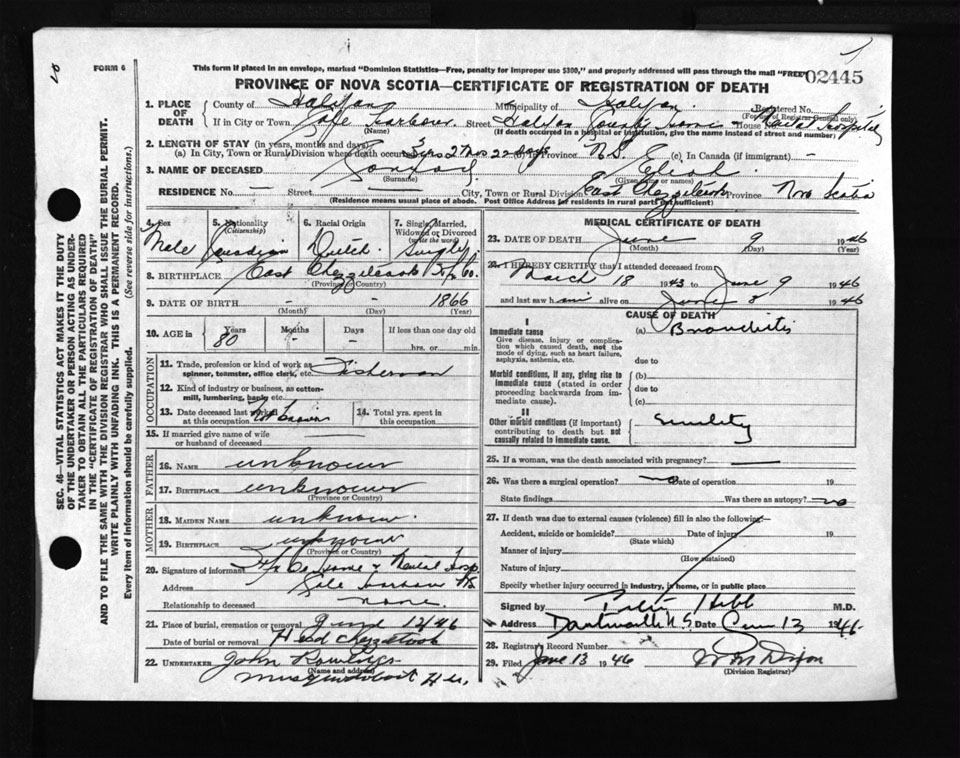 FORM 6
This form if placed in an envelope, marked "Dominion Statistics—Free, penalty for improper use $300," and properly addressed will pass through the mail "FREE"
02445
PROVINCE OF NOVA SCOTIA—CERTIFICATE OF REGISTRATION OF DEATH
SEC. 46—VITAL STATISTICS ACT MAKES IT THE DUTY
OF THE UNDERTAKER OR PERSON ACTING AS UNDER-
TAKER TO OBTAIN ALL THE PARTICULARS REQUIRED
IN THE "CERTIFICATE OF REGISTRATION OF DEATH"
AND TO FILE THE SAME WITH THE DIVISION REGISTRAR WHO SHALL ISSUE THE BURIAL PERMIT.
WRITE PLAINLY WITH UNFADING INK. THIS IS A PERMANENT RECORD.
Every item of information should be carefully supplied. (See reverse side for instructions.)
1. PLACE OF DEATH
County of Halifax Municipality of Halifax Registered No.
(For use of Registrar General only)
If in City or Town Cole Harbour Street Halifax County Home House No. Hospital
(Name) (If death occurred in a hospital or institution, give the name instead of street and number)
2. LENGTH OF STAY (in years, months and days)
(a) In City, Town or Rural Division where death occurred 3 yrs 2 mos 22 days Province N.S. (c) In Canada (if immigrant) —
3. NAME OF DECEASED
(Surname) (Given or names)
RESIDENCE No. — Street — City, Town or Rural Division East Chezzetcook Province Nova Scotia
(Residence means usual place of abode. Post Office Address for residents in rural parts not sufficient)
4. Sex Male
5. Nationality (Citizenship) Canadian
6. Racial Origin Dutch
7. Single, Married, Widowed or Divorced (write the word) Single
8. BIRTHPLACE East Chezzetcook Hfx Co.
(Province or Country)
9. DATE OF BIRTH — — 1866
(Month) (Day) (Year)
10. AGE in
Years 80 Months — Days — If less than one day old
hrs. or min.
OCCUPATION
11. Trade, profession or kind of work as spinner, teamster, office clerk, etc. Fisherman
12. Kind of industry or business, as cotton-mill, lumbering, bank, etc.
13. Date deceased last worked at this occupation Not known
14. Total yrs. spent in this occupation
15. If married give name of wife or husband of deceased —
FATHER
16. NAME unknown
17. BIRTHPLACE unknown
(Province or Country)
MOTHER
18. MAIDEN NAME unknown
19. BIRTHPLACE unknown
(Province or Country)
20. Signature of informant Hfx Co Home & Mental Hosp
Address Cole Harbour NS
Relationship to deceased none
21. Place of burial, cremation or removal June 12/46
Date of burial or removal Head Chezzetcook
22. UNDERTAKER John Rowlings
(Name and address)
Musquodoboit Hr.
MEDICAL CERTIFICATE OF DEATH
23. DATE OF DEATH June 9 1946
(Month) (Day) (Year)
24. I HEREBY CERTIFY that I attended deceased from
March 18 1943 to June 9 1946
and last saw him alive on June 8 1946
CAUSE OF DEATH
I
Immediate cause
Give disease, injury or complication which caused death, not the mode of dying, such as heart failure, asphyxia, asthenia, etc.
(a) Bronchitis
due to
Morbid conditions, if any, giving rise to immediate cause (stated in order proceeding backwards from immediate cause).
(b)
due to
(c)
II
Other morbid conditions (if important) contributing to death but not causally related to immediate cause.
Senility
25. If a woman, was the death associated with pregnancy? —
26. Was there a surgical operation? no Date of operation 19
State findings Was there an autopsy? no
27. If death was due to external causes (violence) fill in also the following:—
Accident, suicide or homicide? Date of injury 19
(State which)
Manner of injury
(How sustained)
Nature of injury
Specify whether injury occurred in industry, in home, or in public place
Signed by Hebb M.D.
Address Dartmouth N.S. Date June 13 1946
28. Registrar's Record Number
29. Filed June 13 1946 Dixon
(Division Registrar)